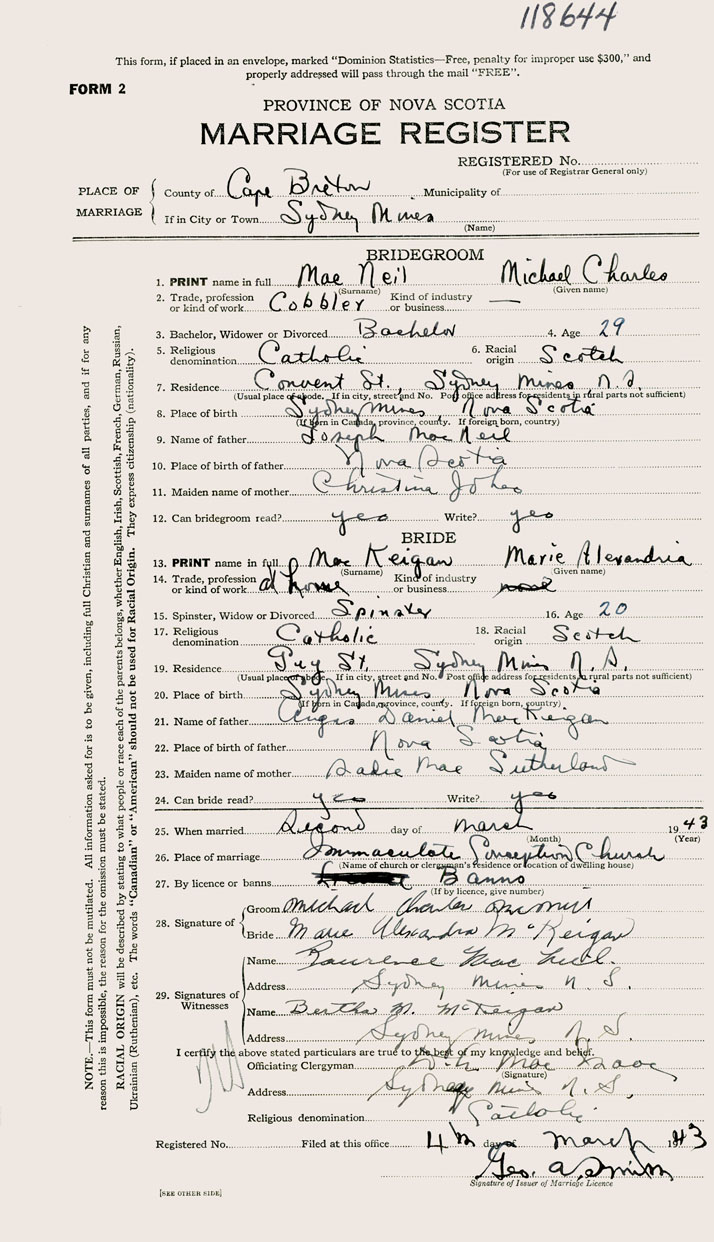 118644
This form, if placed in an envelope, marked "Dominion Statistics—Free, penalty for improper use $300," and
properly addressed will pass through the mail "FREE".
FORM 2
PROVINCE OF NOVA SCOTIA
MARRIAGE REGISTER
REGISTERED No.
(For use of Registrar General only)
PLACE OF MARRIAGE
County of Cape Breton Municipality of
If in City or Town Sydney Mines
(Name)
BRIDEGROOM
1. PRINT name in full Mac Neil Michael Charles
(Surname) (Given name)
2. Trade, profession or kind of work Cobbler Kind of industry or business —
3. Bachelor, Widower or Divorced Bachelor 4. Age 29
5. Religious denomination Catholic 6. Racial origin Scotch
7. Residence Convent St., Sydney Mines, N.S.
(Usual place of abode. If in city, street and No. Post office address for residents in rural parts not sufficient)
8. Place of birth Sydney Mines, Nova Scotia
(If born in Canada, province, county. If foreign born, country)
9. Name of father Joseph Mac Neil
10. Place of birth of father Nova Scotia
11. Maiden name of mother Christina
12. Can bridegroom read? yes Write? yes
BRIDE
13. PRINT name in full Mac Keigan Marie Alexandria
(Surname) (Given name)
14. Trade, profession or kind of work at home Kind of industry or business
15. Spinster, Widow or Divorced Spinster 16. Age 20
17. Religious denomination Catholic 18. Racial origin Scotch
19. Residence St. Sydney Mines N.S.
(Usual place of abode. If in city, street and No. Post office address for residents in rural parts not sufficient)
20. Place of birth Sydney Mines Nova Scotia
(If born in Canada, province, county. If foreign born, country)
21. Name of father Angus Daniel MacKeigan
22. Place of birth of father Nova Scotia
23. Maiden name of mother Sadie Mae Sutherland
24. Can bride read? yes Write? yes
25. When married Second day of March 1943
(Month) (Year)
26. Place of marriage Immaculate Conception Church
(Name of church or clergyman's residence or location of dwelling house)
27. By licence or banns Banns
(If by licence, give number)
28. Signature of
Groom Michael Charles
Bride Marie Alexandra McKeigan
29. Signatures of Witnesses
Name Lawrence Mac Neil
Address Sydney Mines N.S.
Name Bertha M. McKeigan
Address Sydney Mines N.S.
I certify the above stated particulars are true to the best of my knowledge and belief.
Officiating Clergyman Mac Isaac
(Signature)
Address Sydney Mines N.S.
Religious denomination Catholic
Registered No. Filed at this office 4th day of March 1943
Geo. A. Smith
Signature of Issuer of Marriage Licence
[SEE OTHER SIDE]
NOTE.—This form must not be mutilated. All information asked for is to be given, including full Christian and surnames of all parties, and if for any
reason this is impossible, the reason for the omission must be stated.
RACIAL ORIGIN will be described by stating to what people or race each of the parents belongs, whether English, Irish, Scottish, French, German, Russian,
Ukrainian (Ruthenian), etc. The words "Canadian" or "American" should not be used for Racial Origin. They express citizenship (nationality).